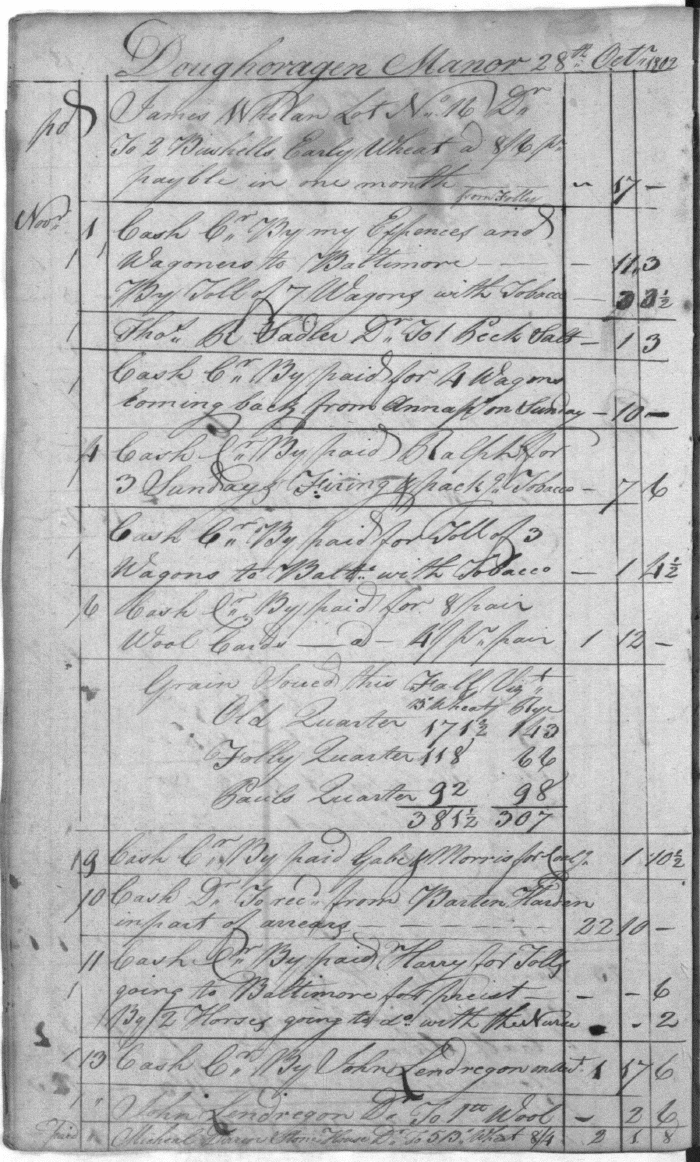 Doughoragen Manor 28th Octr 1802
pd James Whelan Lot No 16 Dr
To 2 Bushells Early Wheat a 8/6 pr
payable in one month from Folly ~ 17 -
Novr 1 Cash Cr By my Expences and
Wagoners to Baltimore - 11,3
By Toll of 7 Wagons with Tobacco - 3 3½
1 Thos R Sadler Dr To 1 Peck Salt - 1 3
1 Cash Cr By paid for 4 Wagons
coming back from Annaps on Sunday - 10 -
4 Cash Cr By paid Ralph for
3 Sundays Firing & packg Tobacco - 7 6
Cash Cr By paid for Toll of 3
1 Wagons to Balto with Tobacco - 1 4½
6 Cash Cr By paid for 8 pair
Wool Cards - a - 4/ pr pair 1 12 -
Grain Sowed this Fall Vizt
Bs Wheat Rye
Old Quarter 171½ 143
Folly Quarter 118 66
Pauls Quarter 92 98
381½ 307
9 Cash Cr By paid Gabe & Morris for 1 10½
10 Cash Dr To recd from Barten Harden
in part of arrears - 22 10 -
11 Cash Cr By paid Harry for Tolls
1 going to Baltimore for preist - - 6
1 By 2 Horses going to do with the Nurse - 2
13 Cash Cr By John Lendregon on acct 1 17 6
" John Lendregon Dr To 1 lb Wool - 2 6
paid Micheal Stone House Dr To 5 Bs Wheat 8/4 2 1 8